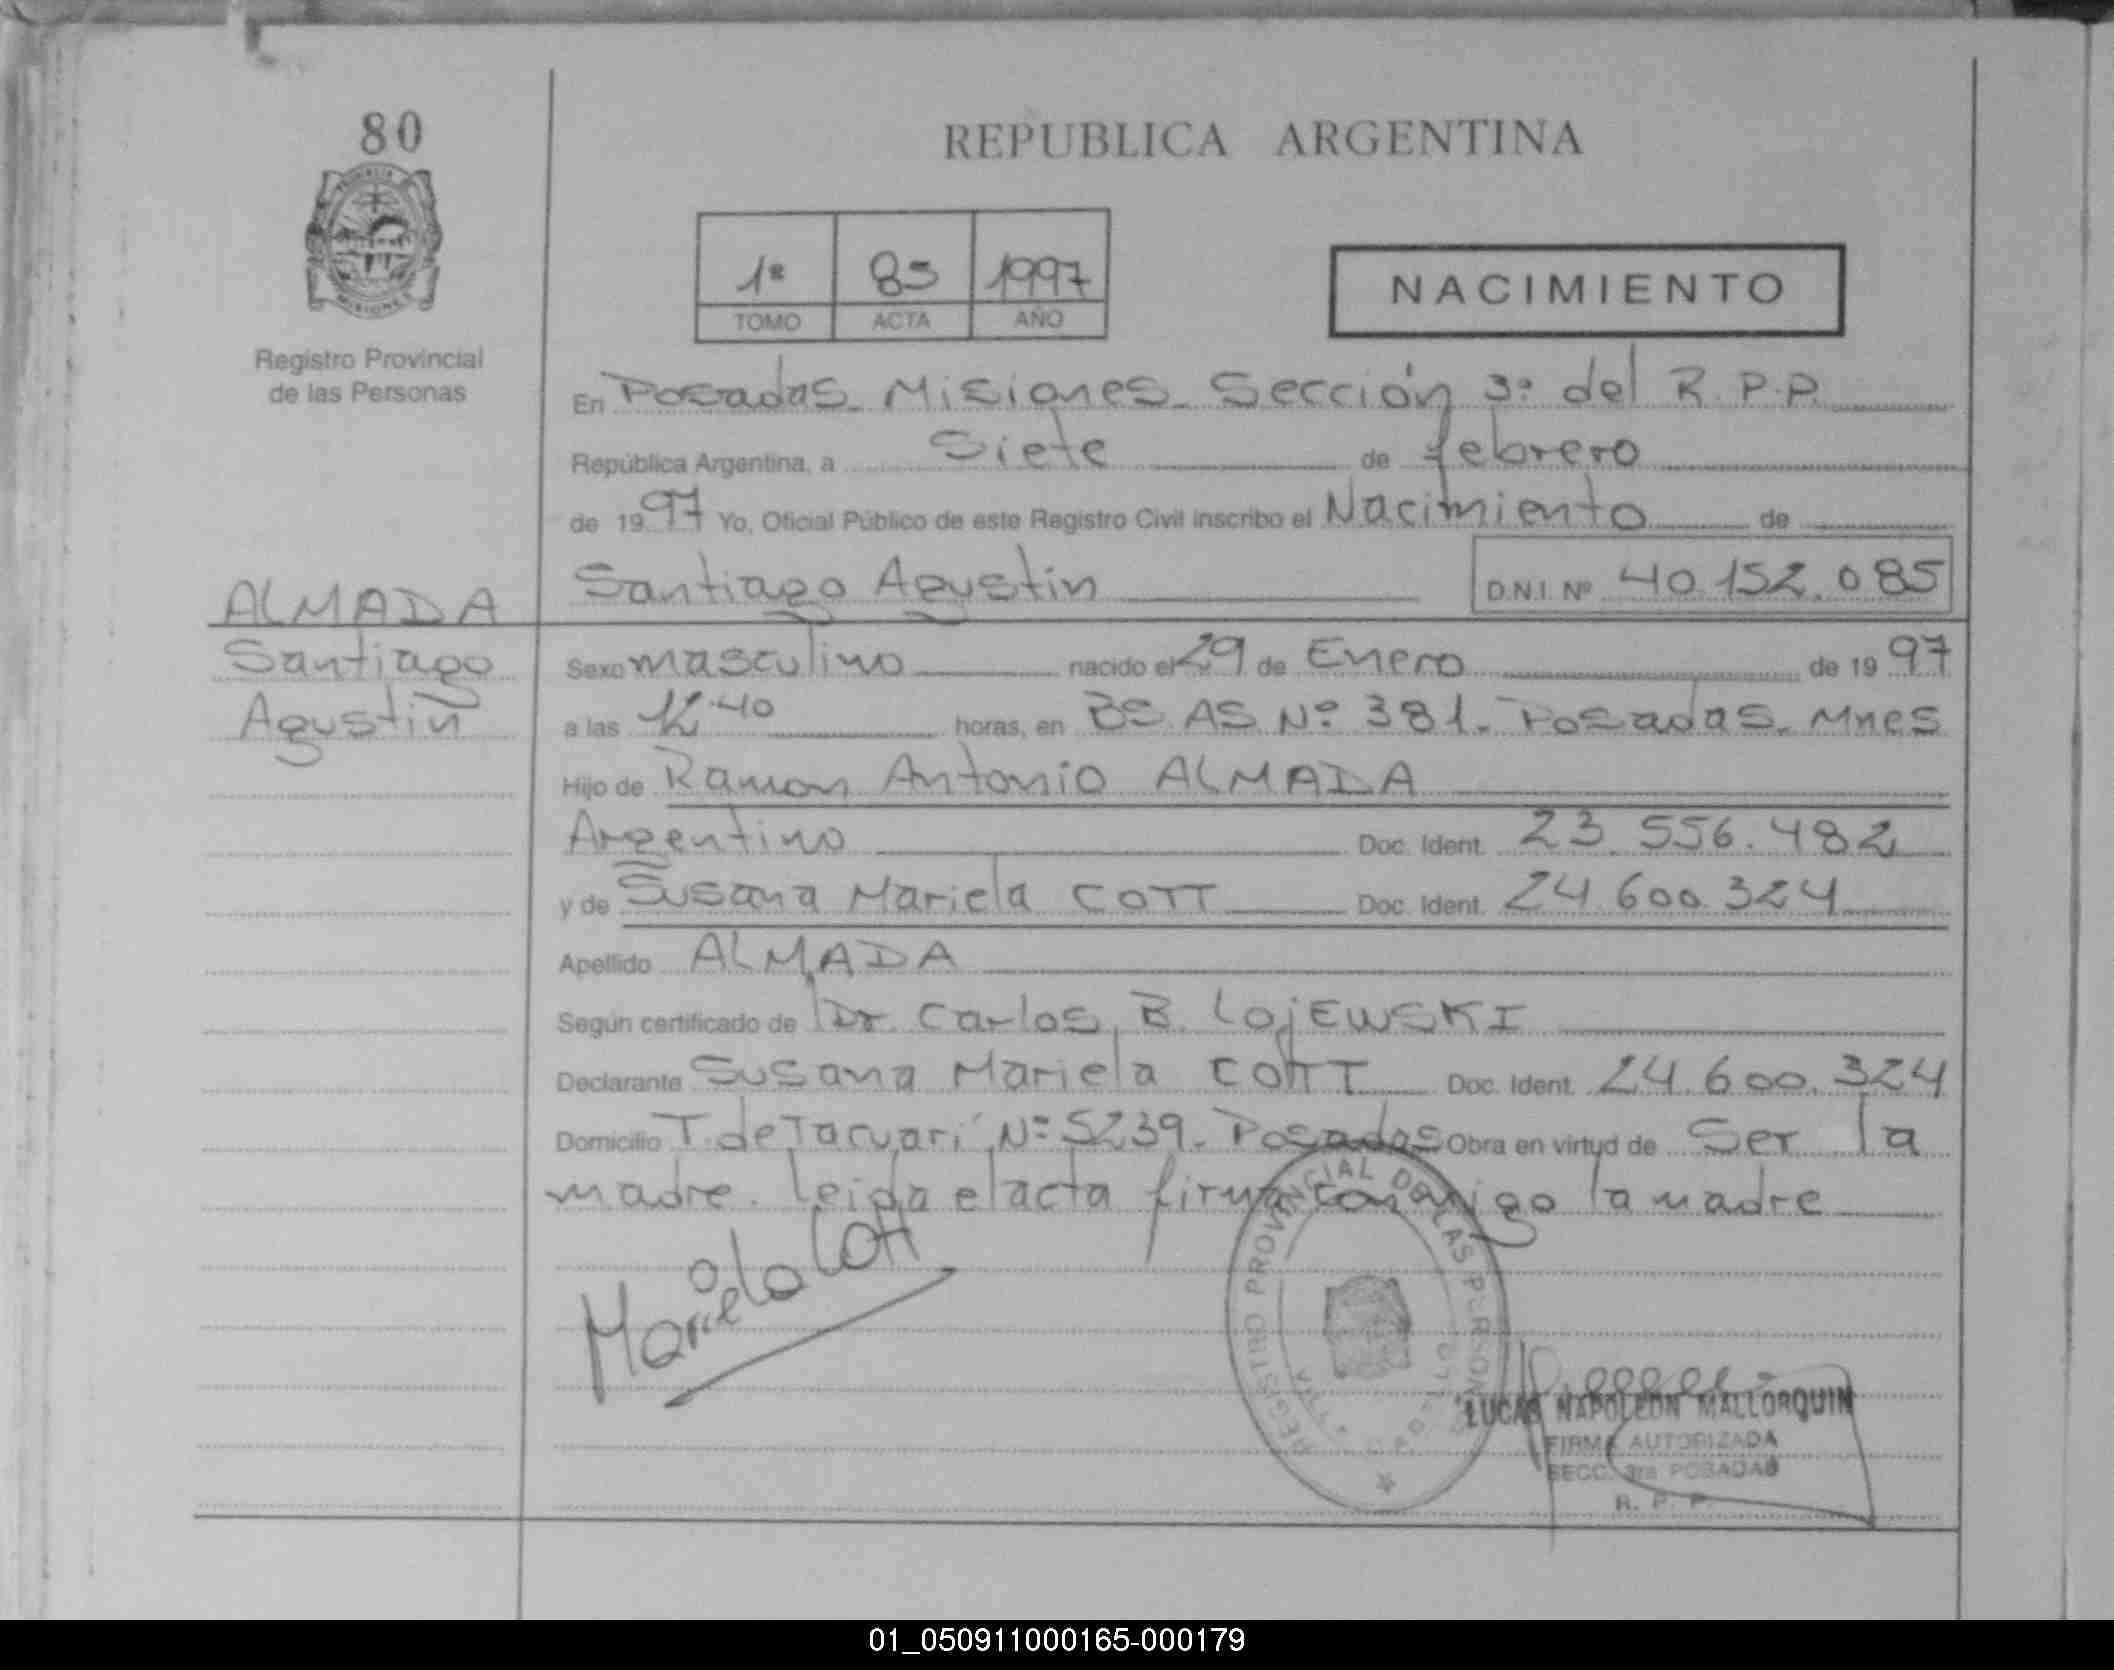 80
REPUBLICA ARGENTINA
PROVINCIA
MISIONES
1º 85 1997
TOMO ACTA AÑO
NACIMIENTO
Registro Provincial
de las Personas
En Posadas. Misiones. Sección 3º del R.P.P.
República Argentina, a Siete de febrero
de 1997 Yo, Oficial Público de este Registro Civil inscribo el Nacimiento de
Santiago Agustin D.N.I. Nº 40.152.085
ALMADA
Santiago
Agustin
Sexo masculino nacido el 29 de Enero de 1997
a las 12.40 horas, en BS.AS. Nº 381. Posadas. Mnes
Hijo de Ramon Antonio ALMADA
Argentino Doc. Ident. 23.556.482
y de Susana Mariela COTT Doc. Ident. 24.600.324
Apellido ALMADA
Según certificado de Dr. Carlos B. LOJEWSKI
Declarante Susana Mariela COTT Doc. Ident. 24.600.324
Domicilio T. de Tacuari Nº 5239. Posadas Obra en virtud de Ser la
madre. leida el acta firma conmigo la madre
Mariela Cott
REGISTRO PROVINCIAL DE LAS PERSONAS
LUCAS NAPOLEON MALLORQUIN
FIRMA AUTORIZADA
SECC. 3ra POSADAS
R. P. P.
01_050911000165-000179